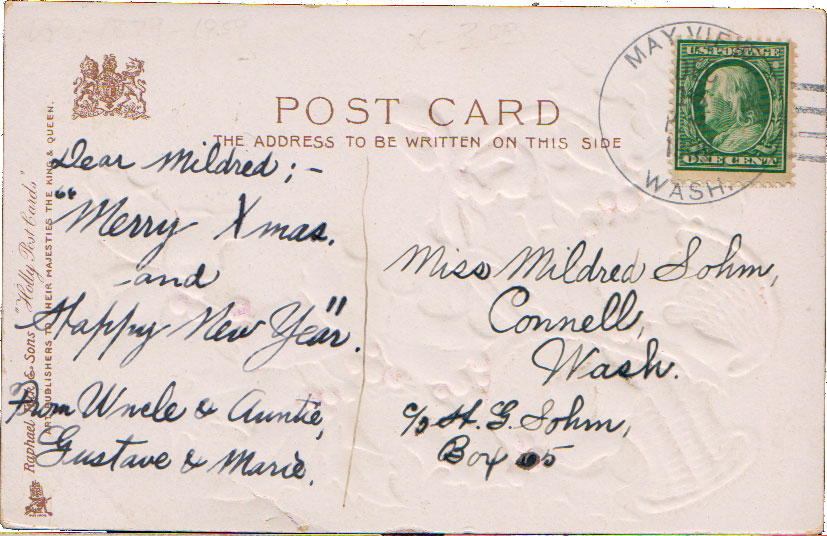 POST CARD
THE ADDRESS TO BE WRITTEN ON THIS SIDE
MAY VIEW
WASH.
U.S. POSTAGE
ONE CENT
Dear Mildred;-
"Merry Xmas.
-and
Happy New Year".
From Uncle & Auntie,
Gustave & Marie.
Miss Mildred Sohm,
Connell,
Wash.
c/o H. G. Sohm,
Box
Raphael Tuck & Sons "Holly Post Cards"
ART PUBLISHERS TO THEIR MAJESTIES THE KING & QUEEN.